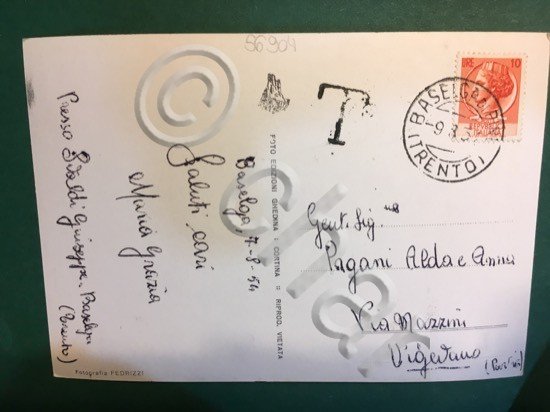 56904
T
LIRE 10
BASELGA DI PINÈ
-9.8.5
(TRENTO)
Baselga, 7-8-54
Saluti cari
Maria Grazia
Presso Giuseppe - Baselga
(Trento)
FOTO EDIZIONI GHEDINA - CORTINA - RIPROD. VIETATA
Gent. Sig.na
Pagani Alda e Anna
Via Mazzini
Vigevano
(Pavia)
Fotografia FEDRIZZI
© char